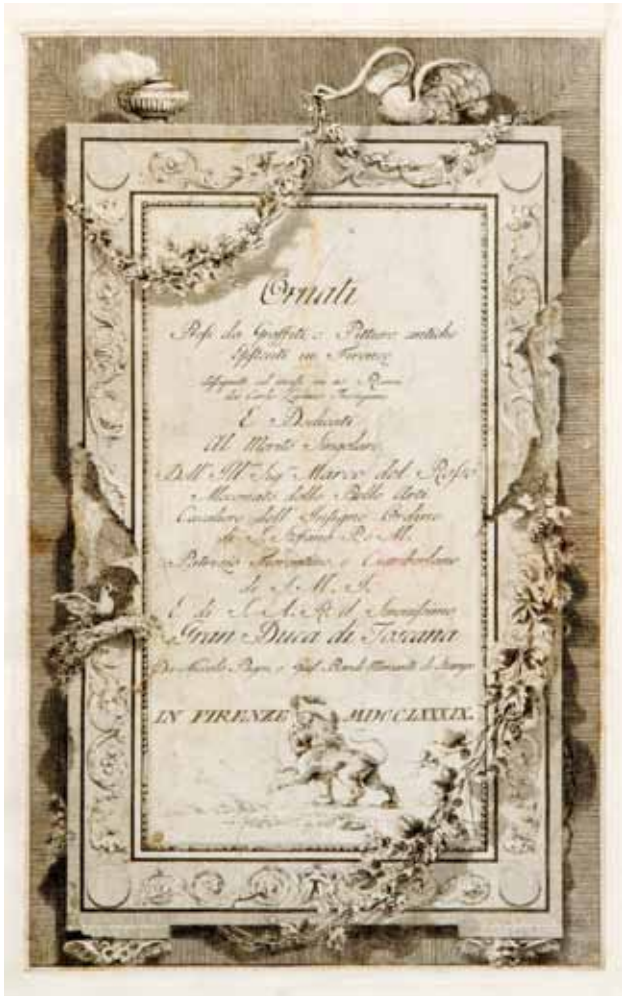 Ornati
Presi da Graffiti e Pitture antiche
Esistenti in Firenze
disegnati ed incisi in Rame
da Carlo
E Dedicati
Al Merito Singolare
Dell' Ill.mo Sig.r Marco del Rosso
Mecenate delle Belle Arti
Cavaliere dell' Insigne Ordine
di S. Stefano P. e M.
Patrizio Fiorentino e Ciamberlano
di S. M. I.
E di S. A. R. il Serenissimo
Gran Duca di Toscana
Da Niccolo Pagni e Gius. Bardi Mercanti di Stampe
IN FIRENZE MDCCLXXXIX.